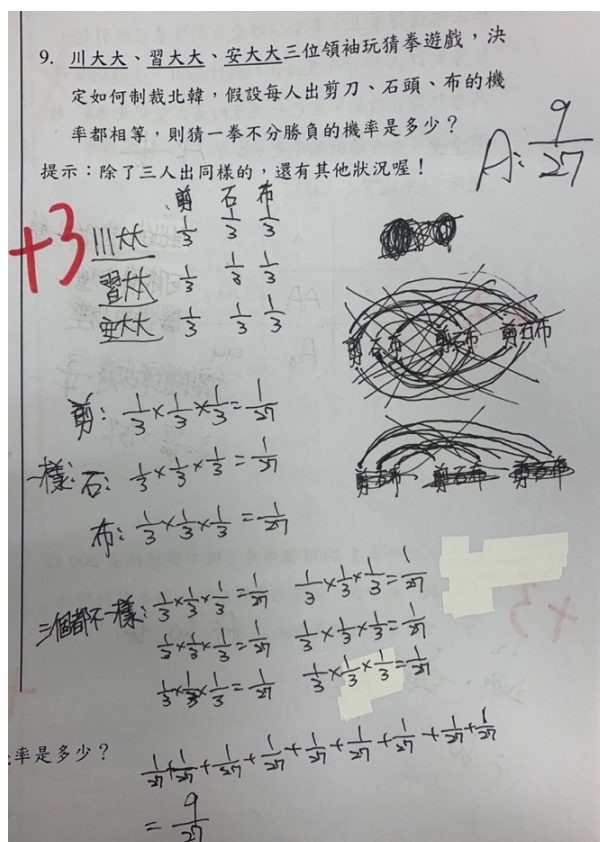 9. 川大大、習大大、安大大三位領袖玩猜拳遊戲,決
定如何制裁北韓,假設每人出剪刀、石頭、布的機
率都相等,則猜一拳不分勝負的機率是多少?
提示:除了三人出同樣的,還有其他狀況喔!
A: 9/27
+3
剪 石 布
川大大 1/3 1/3 1/3
習大大 1/3 1/3 1/3
安大大 1/3 1/3 1/3
剪石布 剪石布 剪石布
剪石布 剪石布 剪石布
一樣:
剪: 1/3 × 1/3 × 1/3 = 1/27
石: 1/3 × 1/3 × 1/3 = 1/27
布: 1/3 × 1/3 × 1/3 = 1/27
三個都不一樣: 1/3 × 1/3 × 1/3 = 1/27 1/3 × 1/3 × 1/3 = 1/27
1/3 × 1/3 × 1/3 = 1/27 1/3 × 1/3 × 1/3 = 1/27
1/3 × 1/3 × 1/3 = 1/27 1/3 × 1/3 × 1/3 = 1/27
率是多少?
1/27 + 1/27 + 1/27 + 1/27 + 1/27 + 1/27 + 1/27 + 1/27 + 1/27
= 9/27